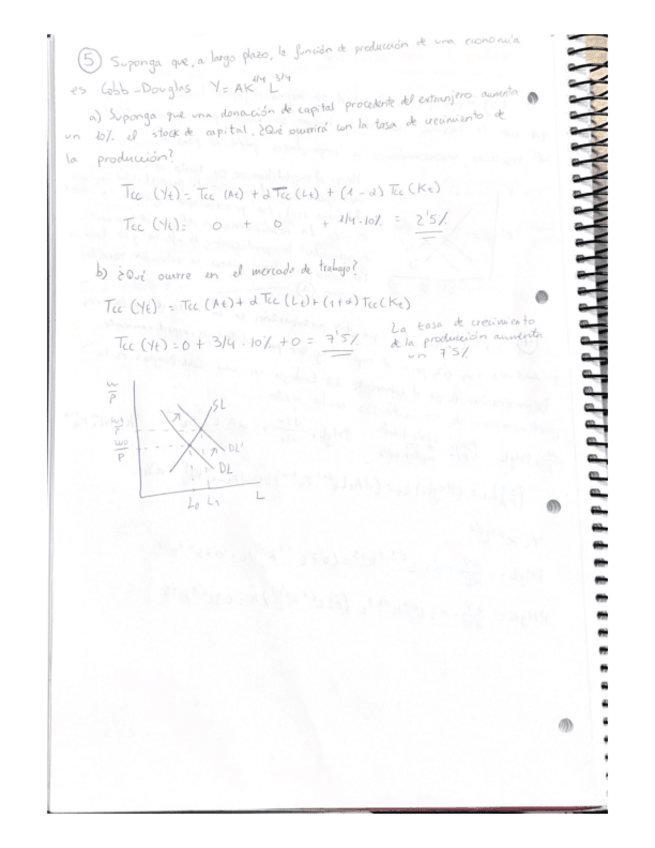 5 Suponga que, a largo plazo, la función de producción de una economía
es Cobb-Douglas Y = AK^1/4 L^3/4
a) Suponga que una donación de capital procedente del extranjero aumenta
un 10% el stock de capital. ¿Qué ocurrirá con la tasa de crecimiento de
la producción?
Tcc (Yt) = Tcc (At) + α Tcc (Lt) + (1 - α) Tcc (Kt)
Tcc (Yt) = 0 + 0 + 1/4 · 10% = 2'5%
b) ¿Qué ocurre en el mercado de trabajo?
Tcc (Yt) = Tcc (At) + α Tcc (Lt) + (1+α) Tcc (Kt)
Tcc (Yt) = 0 + 3/4 · 10% + 0 = 7'5%
La tasa de crecimiento
de la producción aumenta
un 7'5%
W/P
SL
W1/P
W0/P
DL'
DL
L0 L1 L